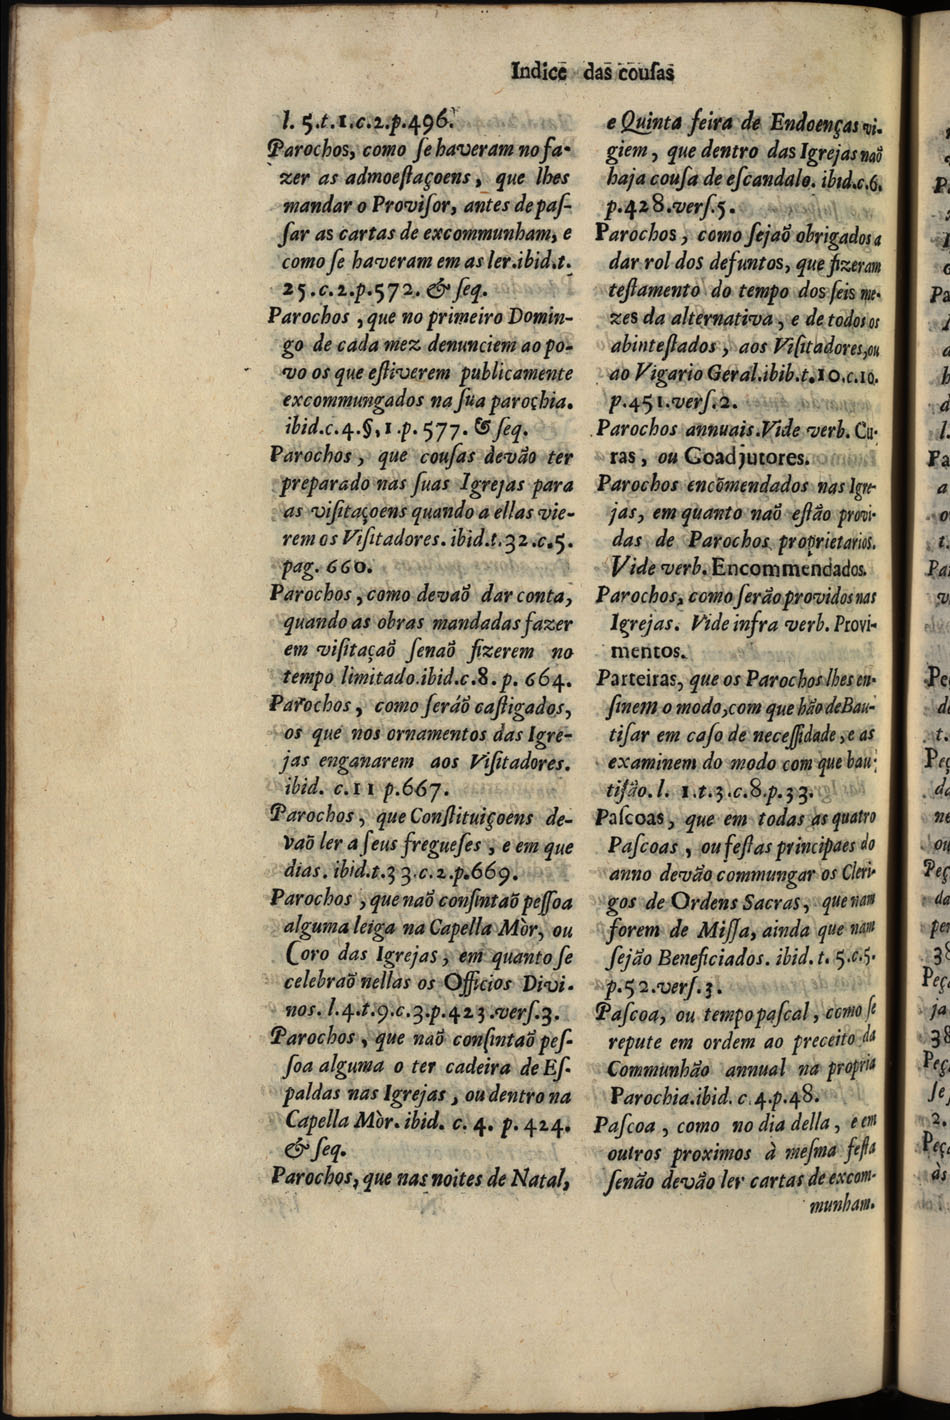 Indice das cousas
l. 5.t.1.c.2.p.496.
Parochos, como ſe haveram no fa-
zer as admoeſtaçoens, que lhes
mandar o Proviſor, antes de paſ-
ſar as cartas de excommunham, e
como ſe haveram em as ler.ibid.t.
25.c.2.p.572. & ſeq.
Parochos, que no primeiro Domin-
go de cada mez denunciem ao po-
vo os que eſtiverem publicamente
excommungados na ſua parochia.
ibid.c.4.§,1.p.577. & ſeq.
Parochos, que couſas devão ter
preparado nas ſuas Igrejas para
as viſitaçoens quando a ellas vie-
rem os Viſitadores. ibid.t.32.c.5.
pag. 660.
Parochos, como devaõ dar conta,
quando as obras mandadas fazer
em viſitaçaõ ſenaõ fizerem no
tempo limitado.ibid.c.8.p. 664.
Parochos, como ſeráõ caſtigados,
os que nos ornamentos das Igre-
jas enganarem aos Viſitadores.
ibid. c.11 p.667.
Parochos, que Conſtituiçoens de-
vaõ ler a ſeus freguеſes, e em que
dias. ibid.t.33.c.2.p.669.
Parochos, que naõ conſintaõ peſſoa
alguma leiga na Capella Mòr, ou
Coro das Igrejas, em quanto ſe
celebraõ nellas os Officios Divi-
nos. l.4.t.9.c.3.p.423.verſ.3.
Parochos, que naõ conſintaõ peſ-
ſoa alguma o ter cadeira de Eſ-
paldas nas Igrejas, ou dentro na
Capella Mòr. ibid. c. 4. p. 424.
& ſeq.
Parochos, que nas noites de Natal,
e Quinta feira de Endoenças vi-
giem, que dentro das Igrejas naõ
haja couſa de eſcandalo. ibid.c.6.
p.428.verſ.5.
Parochos, como ſejaõ obrigados a
dar rol dos defuntos, que fizeram
teſtamento do tempo dos ſeis me-
zes da alternativa, e de todos os
abinteſtados, aos Viſitadores,ou
ao Vigario Geral.ibib.t.10.c.10.
p.451.verſ.2.
Parochos annuais.Vide verb. Cu-
ras, ou Goadjutores.
Parochos encõmendados nas Igre-
jas, em quanto naõ eſtão provi-
das de Parochos proprietarios.
Vide verb. Encommendados.
Parochos, como ſerão providos nas
Igrejas. Vide infra verb. Provi-
mentos.
Parteiras, que os Parochos lhes en-
ſinem o modo,com que hão de Bau-
tiſar em caſo de neceſſidade, e as
examinem do modo com que bau-
tiſão. l. 1.t.3.c.8.p.33.
Paſcoas, que em todas as quatro
Paſcoas, ou feſtas principaes do
anno devão commungar os Cleri-
gos de Ordens Sacras, que nam
forem de Miſſa, ainda que nam
ſejão Beneficiados. ibid. t. 5.c.5.
p.52.verſ.3.
Paſcoa, ou tempo paſcal, como ſe
repute em ordem ao preceito da
Communhão annual na propria
Parochia.ibid. c.4.p.48.
Paſcoa, como no dia della, e em
outros proximos à meſma feſta
ſenão devão ler cartas de excom-
munham.